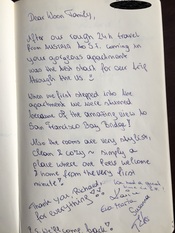 Dear Woon Family,
After our rough 24h travel
from to S.F. coming in
your gorgeous appartment
was the best start for our trip
through the US. !
When we first stepped into the
appartment we were stunned
because of the amazing view to
San Francisco Bay Bridge!
Also the rooms are very stylish,
clean & cozy ~ simply a
place where one feels welcome
& home from the very first
minute!
Thank you Richard
for everything
We'll come back